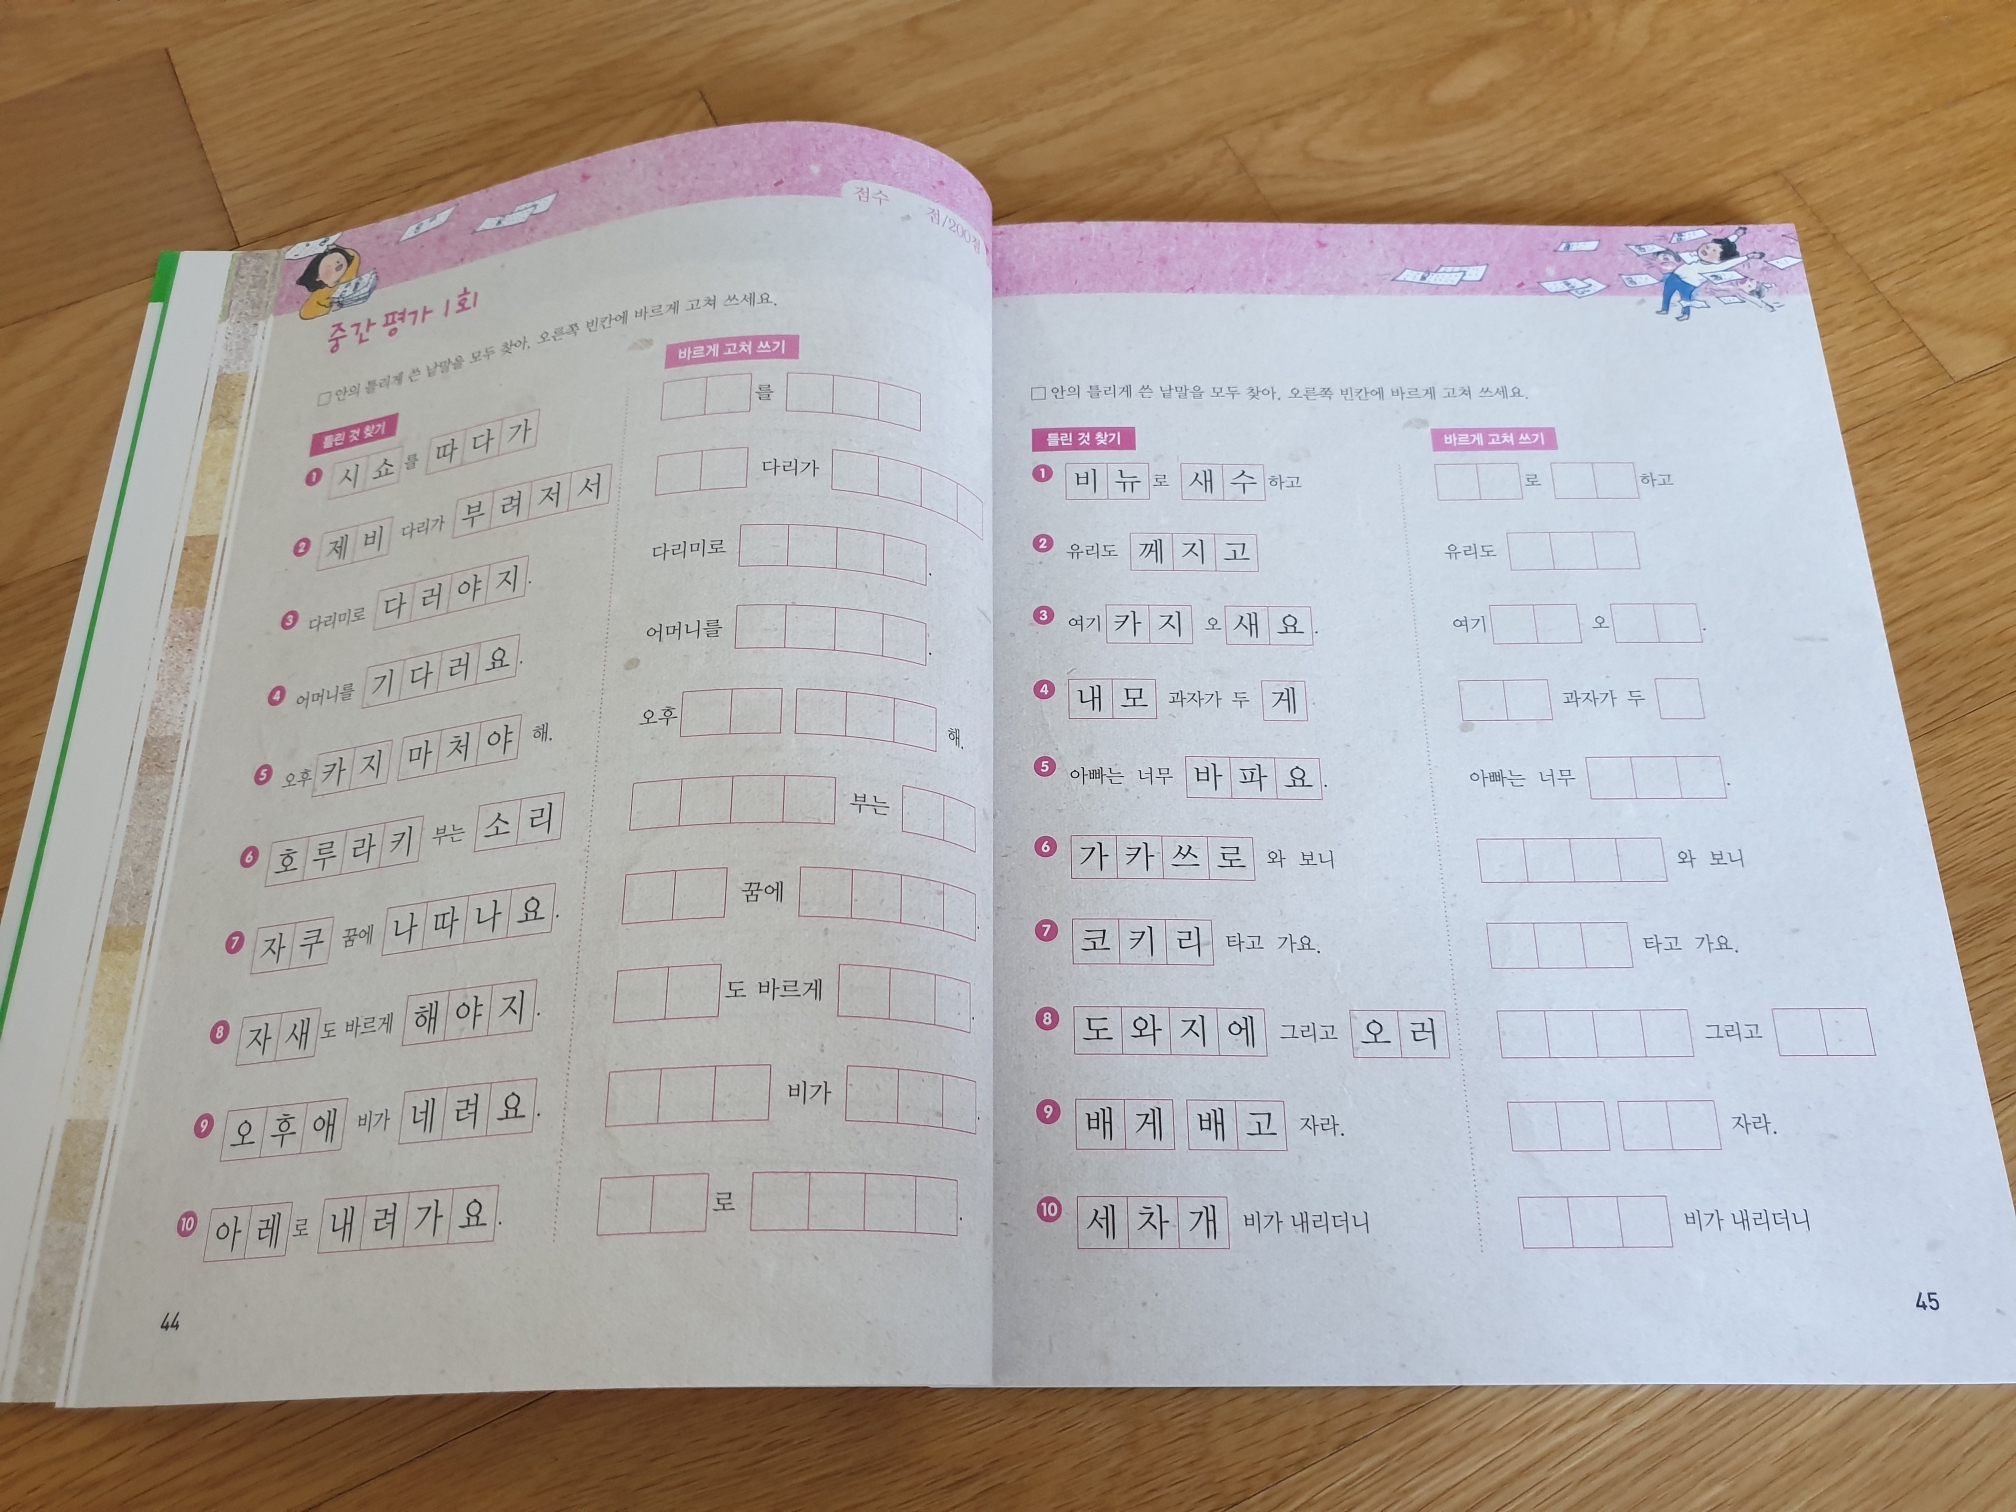 점수 점/200점
중간 평가 1회
□ 안의 틀리게 쓴 낱말을 모두 찾아, 오른쪽 빈칸에 바르게 고쳐 쓰세요.
틀린 것 찾기 바르게 고쳐 쓰기
1 시쇼를 따다가 를
2 제비 다리가 부려저서 다리가
3 다리미로 다러야지. 다리미로 .
4 어머니를 기다러요. 어머니를 .
5 오후 카지 마처야 해. 오후 해.
6 호루라키 부는 소리 부는
7 자쿠 꿈에 나따나요. 꿈에 .
8 자새도 바르게 해야지. 도 바르게 .
9 오후애 비가 네려요. 비가 .
10 아레로 내려가요. 로 .
44
□ 안의 틀리게 쓴 낱말을 모두 찾아, 오른쪽 빈칸에 바르게 고쳐 쓰세요.
틀린 것 찾기 바르게 고쳐 쓰기
1 비뉴로 새수하고 로 하고
2 유리도 께지고 유리도
3 여기 카지 오새요. 여기 오 .
4 내모 과자가 두 게 과자가 두
5 아빠는 너무 바파요. 아빠는 너무 .
6 가카쓰로 와 보니 와 보니
7 코키리 타고 가요. 타고 가요.
8 도와지에 그리고 오러 그리고
9 배게 배고 자라. 자라.
10 세차개 비가 내리더니 비가 내리더니
45